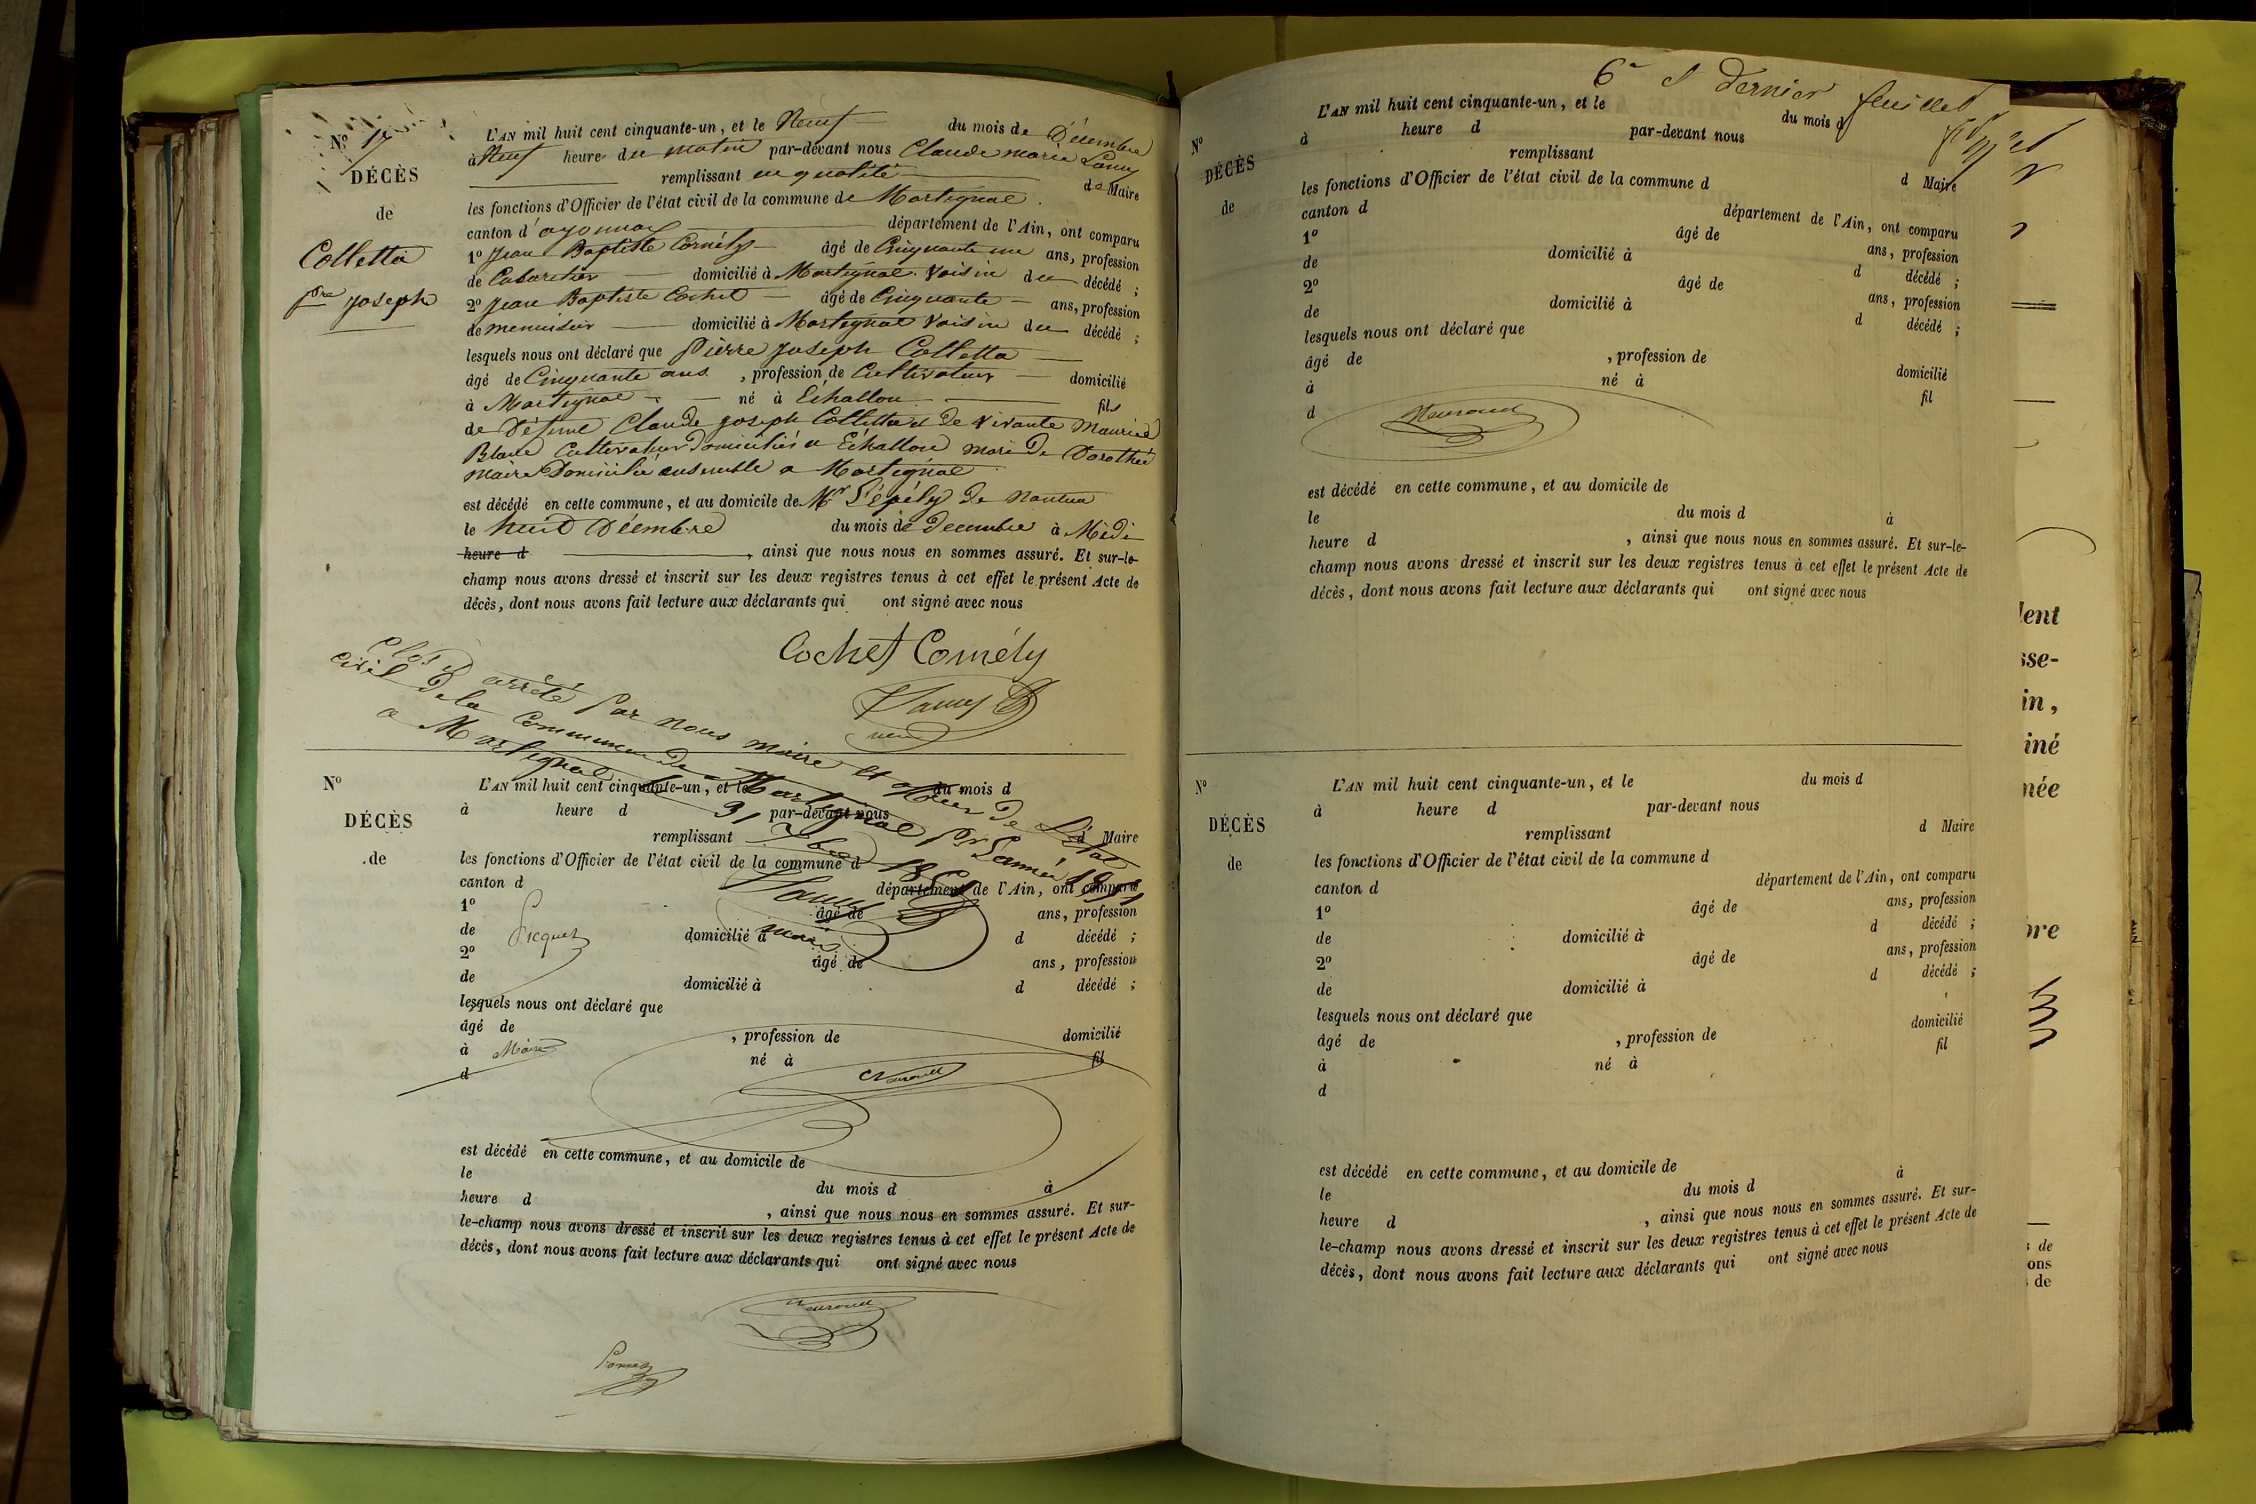 N° 17
DÉCÈS
de
Colletta
pre joseph
L'AN mil huit cent cinquante-un, et le Neuf du mois de Décembre
à Neuf heure du matin par-devant nous Claude marie Lamy
remplissant en qualité de Maire
les fonctions d'Officier de l'état civil de la commune de Martignat.
canton d'oyonnax département de l'Ain, ont comparu
1° Jean Baptiste Comély âgé de Cinquante un ans, profession
de Cabaretier domicilié à Martignat voisin du décédé ;
2° Jean Baptiste Cochet âgé de Cinquante ans, profession
de menuisier domicilié à Martignat voisin du décédé ;
lesquels nous ont déclaré que pierre joseph Colletta
âgé de Cinquante ans, profession de Cultivateur domicilié
à Martignat né à Echallon fils
de Défunt Claude joseph Colletta et de vivante
Cultivateur Domiciliés a Echallon mari de Dorothé
maire Domicilié ensemble a Martignat
est décédé en cette commune, et au domicile de Mr de Nantua
le huit Décembre du mois de decembre à Midi
heure d , ainsi que nous nous en sommes assuré. Et sur-le-
champ nous avons dressé et inscrit sur les deux registres tenus à cet effet le présent Acte de
décès, dont nous avons fait lecture aux déclarants qui ont signé avec nous
Cochet Comély
Lamy
Clos et arrêté par nous maire et officier de l'état
civil de la Commune de Martignat Pr L'année 1851
a Martignat le 31 Xbre 1851
Lamy
maire
N°
DÉCÈS
de
L'AN mil huit cent cinquante-un, et le du mois d
à heure d par-devant nous
remplissant d Maire
les fonctions d'Officier de l'état civil de la commune d
canton d département de l'Ain, ont comparu
1° âgé de ans, profession
de domicilié à d décédé ;
2° âgé de ans, profession
de domicilié à d décédé ;
lesquels nous ont déclaré que
âgé de , profession de domicilié
à né à fil
d
Picquet
Maire
est décédé en cette commune, et au domicile de
le du mois d à
heure d , ainsi que nous nous en sommes assuré. Et sur-
le-champ nous avons dressé et inscrit sur les deux registres tenus à cet effet le présent Acte de
décès, dont nous avons fait lecture aux déclarants qui ont signé avec nous
6e et dernier feuillet
N°
DÉCÈS
de
L'AN mil huit cent cinquante-un, et le du mois d
à heure d par-devant nous
remplissant d Maire
les fonctions d'Officier de l'état civil de la commune d
canton d département de l'Ain, ont comparu
1° âgé de ans, profession
de domicilié à d décédé ;
2° âgé de ans, profession
de domicilié à d décédé ;
lesquels nous ont déclaré que
âgé de , profession de domicilié
à né à fil
d
est décédé en cette commune, et au domicile de
le du mois d à
heure d , ainsi que nous nous en sommes assuré. Et sur-le-
champ nous avons dressé et inscrit sur les deux registres tenus à cet effet le présent Acte de
décès, dont nous avons fait lecture aux déclarants qui ont signé avec nous
N°
DÉCÈS
de
L'AN mil huit cent cinquante-un, et le du mois d
à heure d par-devant nous
remplissant d Maire
les fonctions d'Officier de l'état civil de la commune d
canton d département de l'Ain, ont comparu
1° âgé de ans, profession
de domicilié à d décédé ;
2° âgé de ans, profession
de domicilié à d décédé ;
lesquels nous ont déclaré que
âgé de , profession de domicilié
à né à fil
d
est décédé en cette commune, et au domicile de
le du mois d à
heure d , ainsi que nous nous en sommes assuré. Et sur-
le-champ nous avons dressé et inscrit sur les deux registres tenus à cet effet le présent Acte de
décès, dont nous avons fait lecture aux déclarants qui ont signé avec nous
lent
sse-
in,
iné
née
bre
de
ons
de